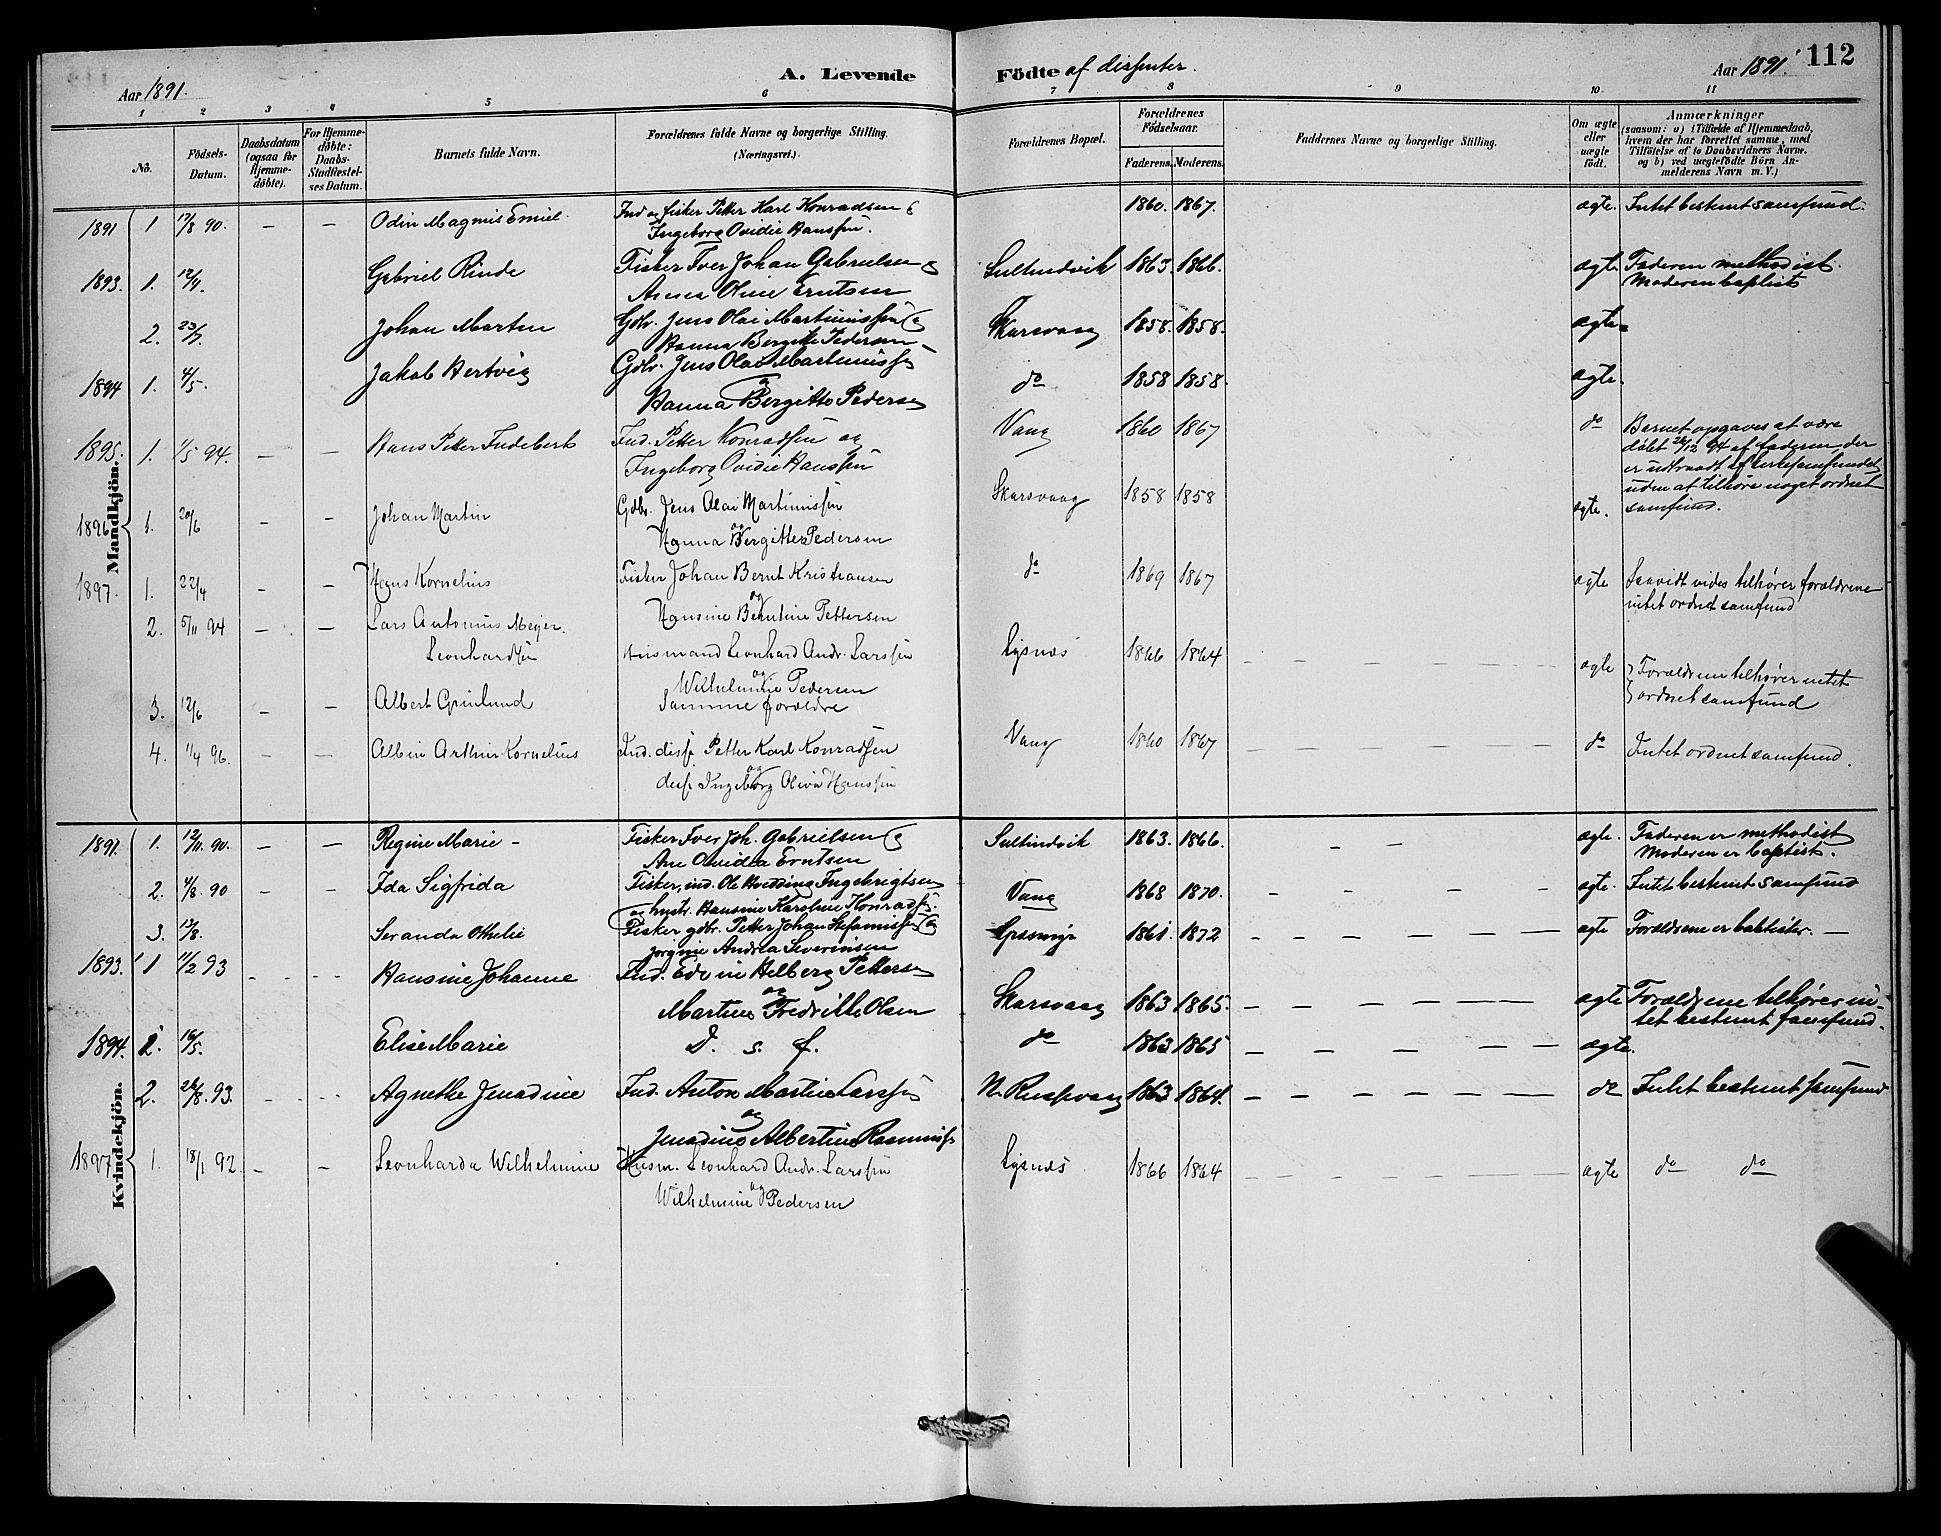 Aar 1891.
A. Levende
Födte af dissenter.
Aar 1891.
112
1 2 3 4 5 6 7 8 9 10 11
No.
Födsels-Datum.
Daabsdatum (ogsaa for Hjemme-døbte).
For Hjemme-døbte: Daabs-Stadfæstel-ses Datum.
Barnets fulde Navn.
Forældrenes fulde Navne og borgerlige Stilling.
(Næringsvei.)
Forældrenes Bopæl.
Forældrenes Födselsaar.
Faderens. Moderens.
Faddernes Navne og borgerlige Stilling.
Om ægte eller uægte födt.
Anmærkninger
(saasom: a) i Tilfælde af Hjemmedaab,
hvem der har forrettet samme, med
Tilföielse af to Daabsvidners Navne.
og b) ved uægtefödte Börn An-
melderens Navn m. V.)
Mandkjön.
1891 1 17/8 90. — — Odin Magnus Emiel. Ind. og fisker Petter Karl Konradsen & 1860. 1867. ægte. Intet bestemt samfund.
Ingeborg Ovidie Hanssen.
1893. 1. 12/4. Gabriel Rinde Fisker Iver Johan Gabrielsen og Sultindvik 1863. 1866. ægte Faderen methodist.
Anna Oline Erntsen Moderen baptist
2. 23/7. Johan Martin Gdbr. Jens Olai Martinussen og Skarsvaag 1858. 1858. ægte
Hanna Bergitte Pedersen
1894 1. 4/5. Jakob Hertvig Gdbr. Jens Olai Martinussen do 1858 1858. ægte.
og
Hanna Bergitte Pedersen
1895. 1. 1/5 94. — — Hans Petter Indebert Ind. Petter Konradsen og Vang 1860 1867 do Barnet opgaves at være
Ingeborg Ovidie Hanssen døbt 26/12 94 af faderen, der
er udtraadt af kirkesamfundet
uden at tilhøre noget ordnet
samfund.
1896 1. 20/6 — — Johan Martin Gdbr. Jens Olai Martinussen Skarsvaag 1858 1858 ægte.
og
Hanna Bergitte Pedersen
1897. 1. 22/4 — — Hans Kornelius Fisker Johan Bernt Kristiansen do 1869 1867 ægte Saavidt vides tilhører forældrene
og intet ordnet samfund
Hansine Berntine Pettersen
2. 5/11 94 — — Lars Antonius Meijer. Husmand Leonhard Andr. Larssen Lysnes 1866 1864 — — — ægte Forældrene tilhører intet
Leonhardsen og ordnet samfund
Wilhelmine Pedersen
3. 12/6 — — Albert Grinlund Samme forældre
4. 1/4 96. — — Albin Arthur Kornelius Ind. diss. Petter Karl Konradsen Vang 1860 1867 — — — do Intet ordnet samfund.
og
diss. Ingeborg Oliva Hanssen
Kvindekjön.
1891. 1. 12/11. 90. — — Regine Marie - Fisker Iver Joh. Gabrielsen og Sultindvik 1863. 1866. — — ægte. Faderen er methodist
Ane Ovidea Erntsen Moderen er baptist.
2. 4/8. 90 — — Ida Sigfrida Fisker, ind. Ole Hvedding Ingebrigtsen Vang 1868 1870. — — — ægte. Intet bestemt samfund
og hustr. Hansine Karoline Konrads.
3. 13/8. Seranda Othilie Fisker gdbr. Petter Johan Stefanussen og 1861. 1872 — — — ægte Forældrene er babtister. —
Andrea Severinsen
1893. 1 11/2 93 Hansine Johanne Ind. Edvin Helberg Pettersen
og Skarsvaag 1863 1865. — — — ægte Forældrene tilhører in-
Martine Fredrikke Olsen tet bestemt samfund.
1894. 1. 16/5. Elise Marie D. s. f. do 1863 1865 — — — ægte.
2. 26/8. 93. Agnethe Jenadine Ind. Anton Martin Larssen 1863 1864. — — — do Intet bestemt samfund
og
Jenadine Albertine Rasmuss.
1897 1. 18/1 92. — — Leonharda Wilhelmine Husm. Leonhard Andr. Larssen Lysnes 1866 1864 — — — ægte do do
og
Wilhelmine Pedersen